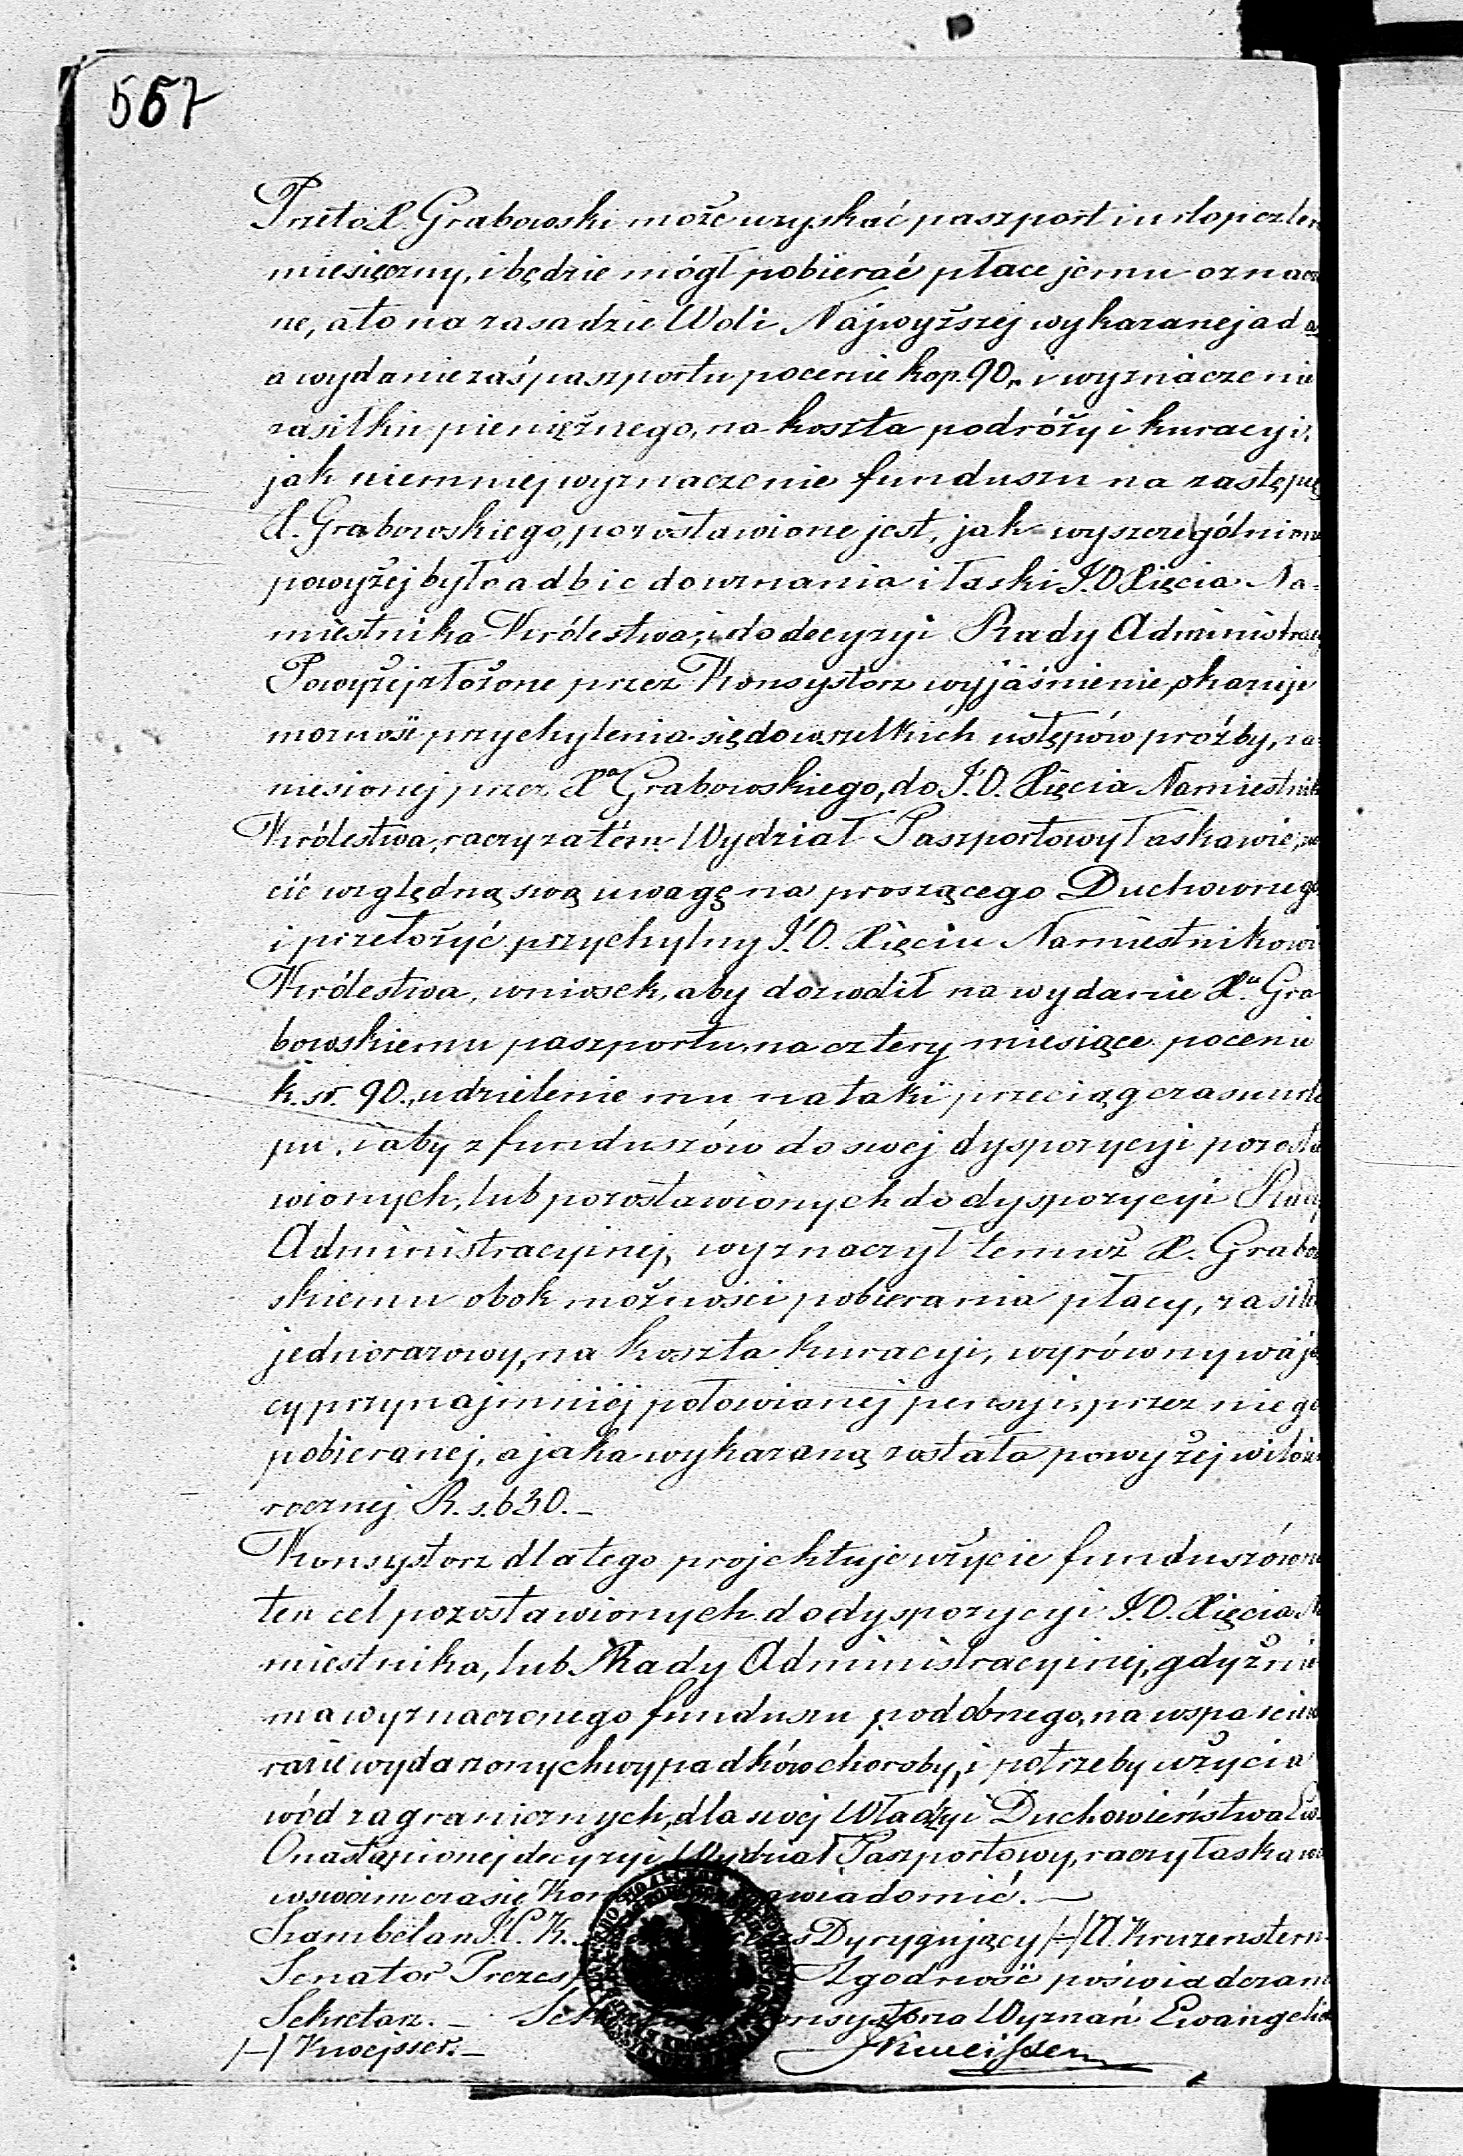 557
Przeto X. Grabowski może uzyskać paszport i urlop czteo
miesięczny, i będzie mógł pobierać płace jemu oznacz
ne, a to na zasadzie Woli Najwyższej wykazanej ad
a wydanie zaś paszportu po cenie kop. 90,, i wyznaczenie
zasiłku pieniężnego, na koszta podróży i kuracyi,
jak niemniej wyznaczenie funduszu na zastępcę
X. Grabowskiego, pozostawione jest, jak wyszczególnione
powyżej było ad b i c do uznania i łaski J.O. Xięcia Na=
miestnika Królestwa, i do decyzyi Rady Administracy
Powyżej złożone przez Konsystorz wyjaśnienie, okazuje
możność przychylenia się do wszelkich ustępów próźby, za=
niesionej przez Xa Grabowskiego, do J.O. Xięcia Namiestnika
Królestwa, raczy zatém Wydział Paszportowy łaskawie, zwró
cić względną swą uwagę na proszącego Duchownego
i przełożyć przychylny J.O. Xięciu Namiestnikowi
Królestwa, wniosek, aby dozwolił na wydanie X.u Gra
bowskiemu paszportu, na cztery miesiące po cenie
k. sr. 90., udzielenie mu na taki przeciąg czasu urlo
pu, i aby z funduszów do swej dyspozycyi pozosta
wionych, lub pozostawionych do dyspozycyi Rady
Administracyjnej, wyznaczył temuż X. Grabow
skiemu obok możności pobierania płacy, zasiłek
jednorazowy, na koszta kuracyi, wyrównywają
cy przynajmniéj połowianej pensyi, przez niego
pobieranej, a jaka wykazaną została powyżej w ilości
rocznej R. s. 630.–
Konsystorz dlatego projektuje użycie funduszów na
ten cel pozostawionych do dyspozycyi J.O. Xięcia Na
miestnika, lub Rady Administracyjnej, gdyż nie
ma wyznaczonego funduszu podobnego, na wsparcie w
razie wydarzonych wypadków choroby, i potrzeby użycia
wód zagranicznych, dla swej Władzy i Duchowieństwa Ew.
O nastąpionej decyzyi Wydział Paszportowy, raczy łaskawie
w swoim czasie Kon zawiadomić. –
Szambelan J.C.K. Dyrygujący /–/ A. Kruzenstern
Senator Prezes Zgodność poświadczam
Sekretarz. – Konsystorza Wyznań Ewangelic
/–/ Kwejsser. – Kweisser